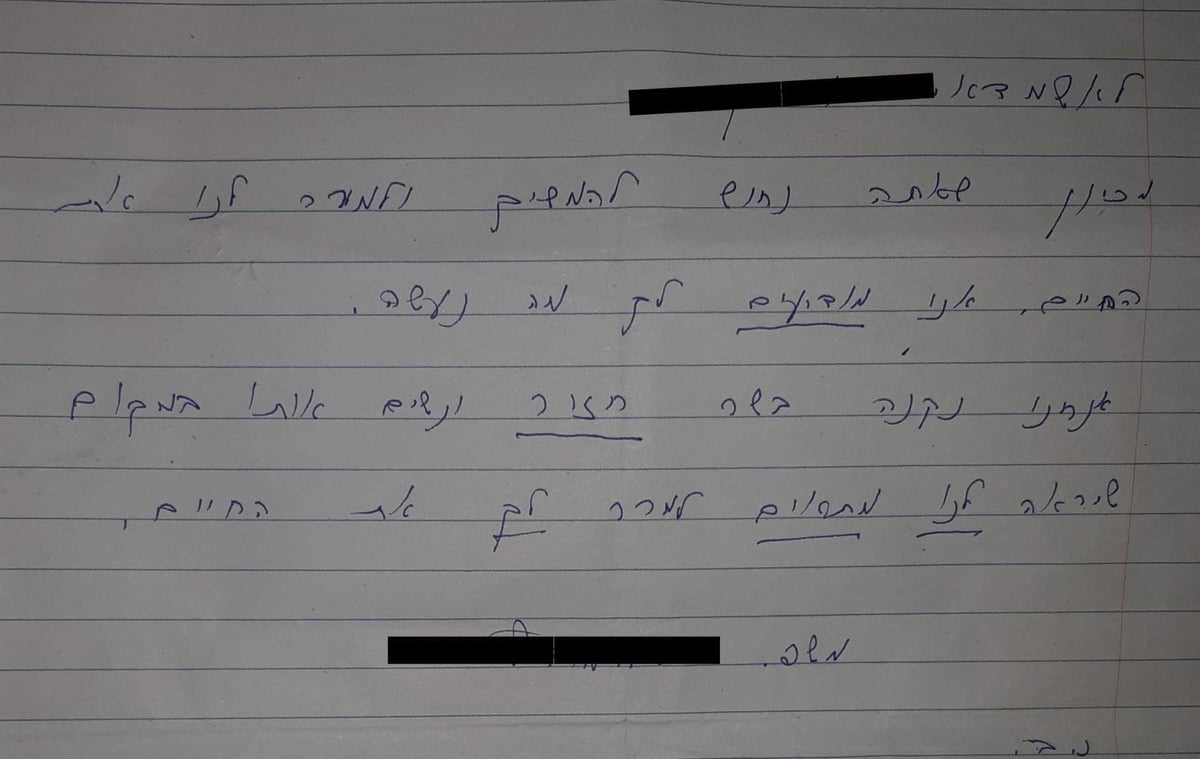 לאשמדאי
מכיון שאתה נחוש להמשיך ולמרר לנו את
החיים, אנו מודיעים לך מה נעשה.
אנחנו נקנה בשר חזיר ונשים אותו במקום
שיראה לנו מתאים למרר לך את החיים.
משפ.
נ.ב.